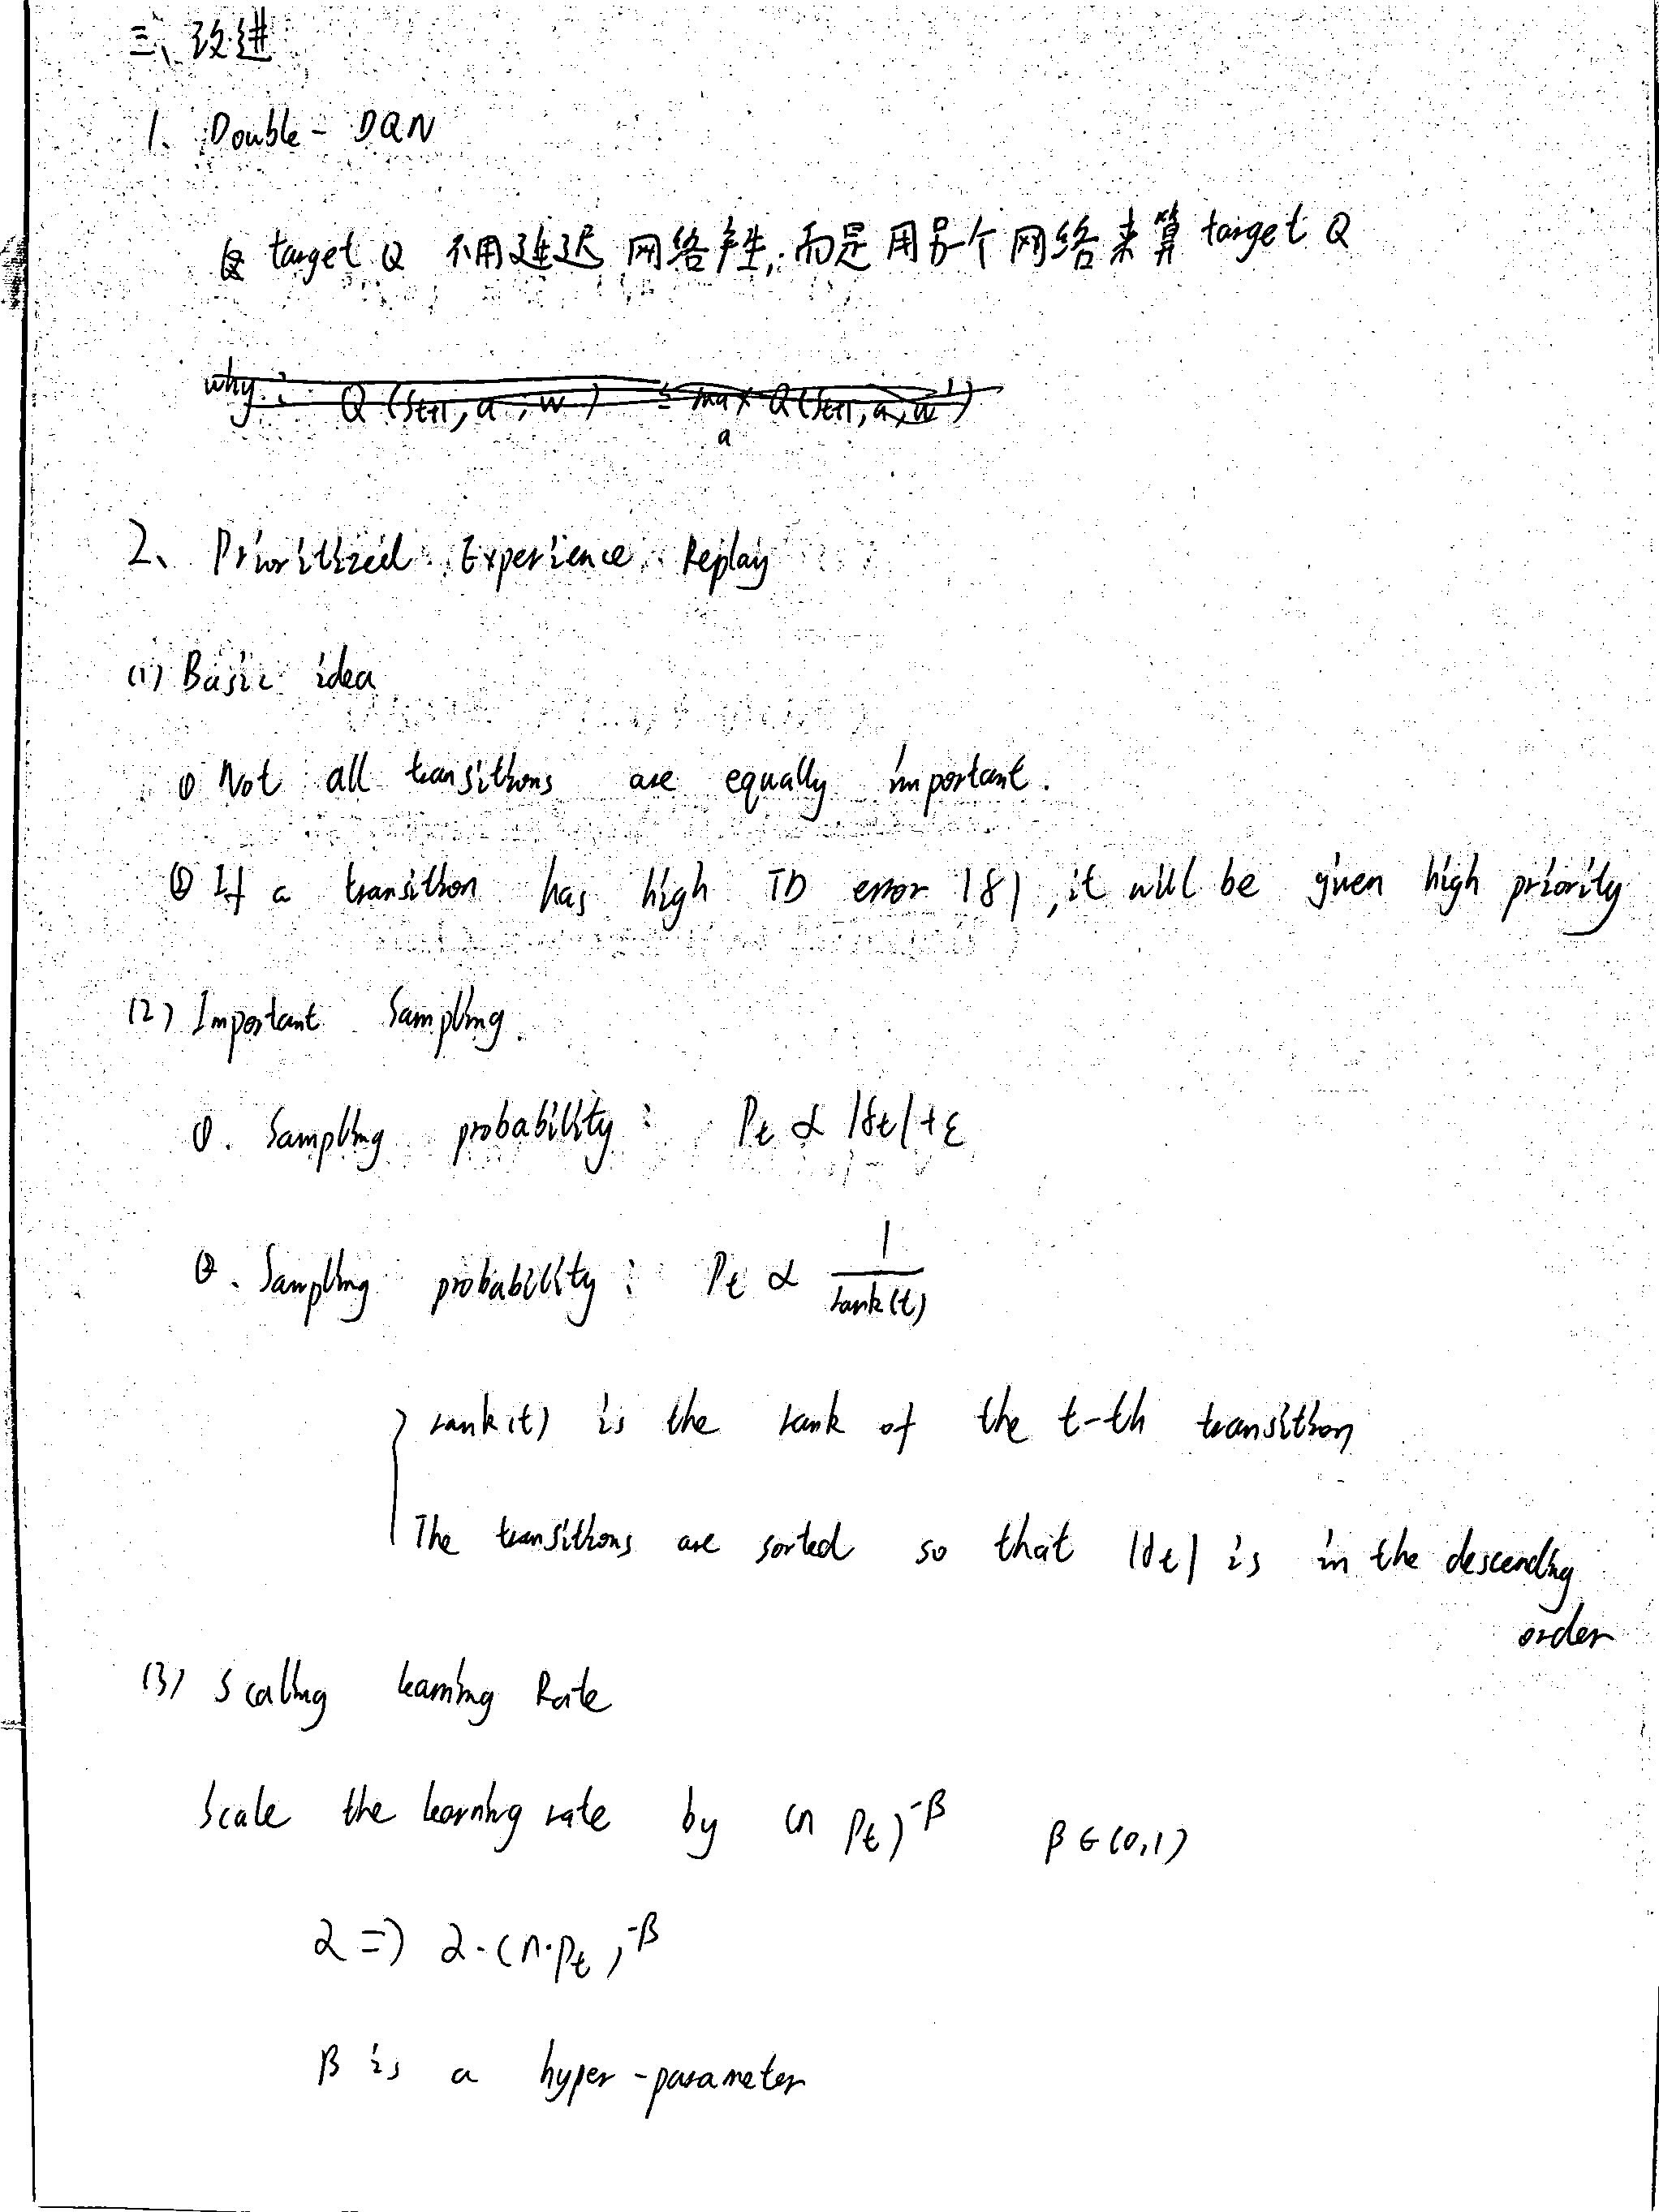 三、改进
1、Double-DQN
target Q 不用延迟网络产生,而是用另一个网络来算 target Q
why: Q(St+1, a, w) ≤ max Q(St+1, a, w')
a
2、Prioritized Experience Replay
(1) Basic idea
① Not all transitions are equally important.
② If a transition has high TD error |δ|, it will be given high priority
(2) Important Sampling
①. Sampling probability: Pt ∝ |δt|+ε
②. Sampling probability: Pt ∝ 1/rank(t)
{ rank(t) is the rank of the t-th transition
The transitions are sorted so that |δt| is in the descending
order
(3) Scaling Learning Rate
Scale the learning rate by (n Pt)^-β β∈(0,1)
α => α·(n·Pt)^-β
β is a hyper-parameter